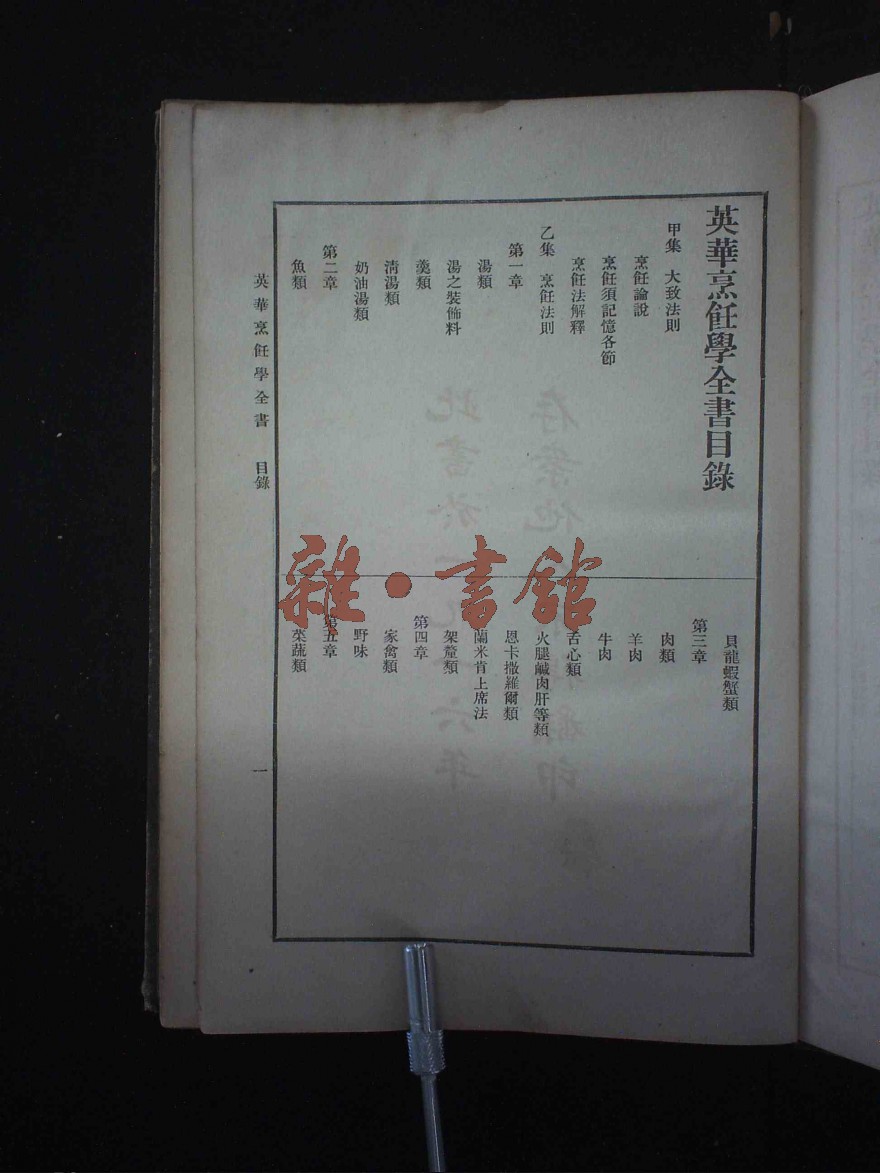 英華烹飪學全書目錄
甲集 大致法則
烹飪論說
烹飪須記憶各節
烹飪法解釋
乙集 烹飪法則
第一章
湯類
湯之裝佈料
羹類
清湯類
奶油湯類
第二章
魚類
貝龍蝦蟹類
第三章
肉類
羊肉
牛肉
舌心類
火腿鹹肉肝等類
恩卡撒羅爾類
蘭米肯上席法
架釐類
第四章
家禽類
野味
第五章
菜蔬類
英華烹飪學全書 目錄
一
雜·書館